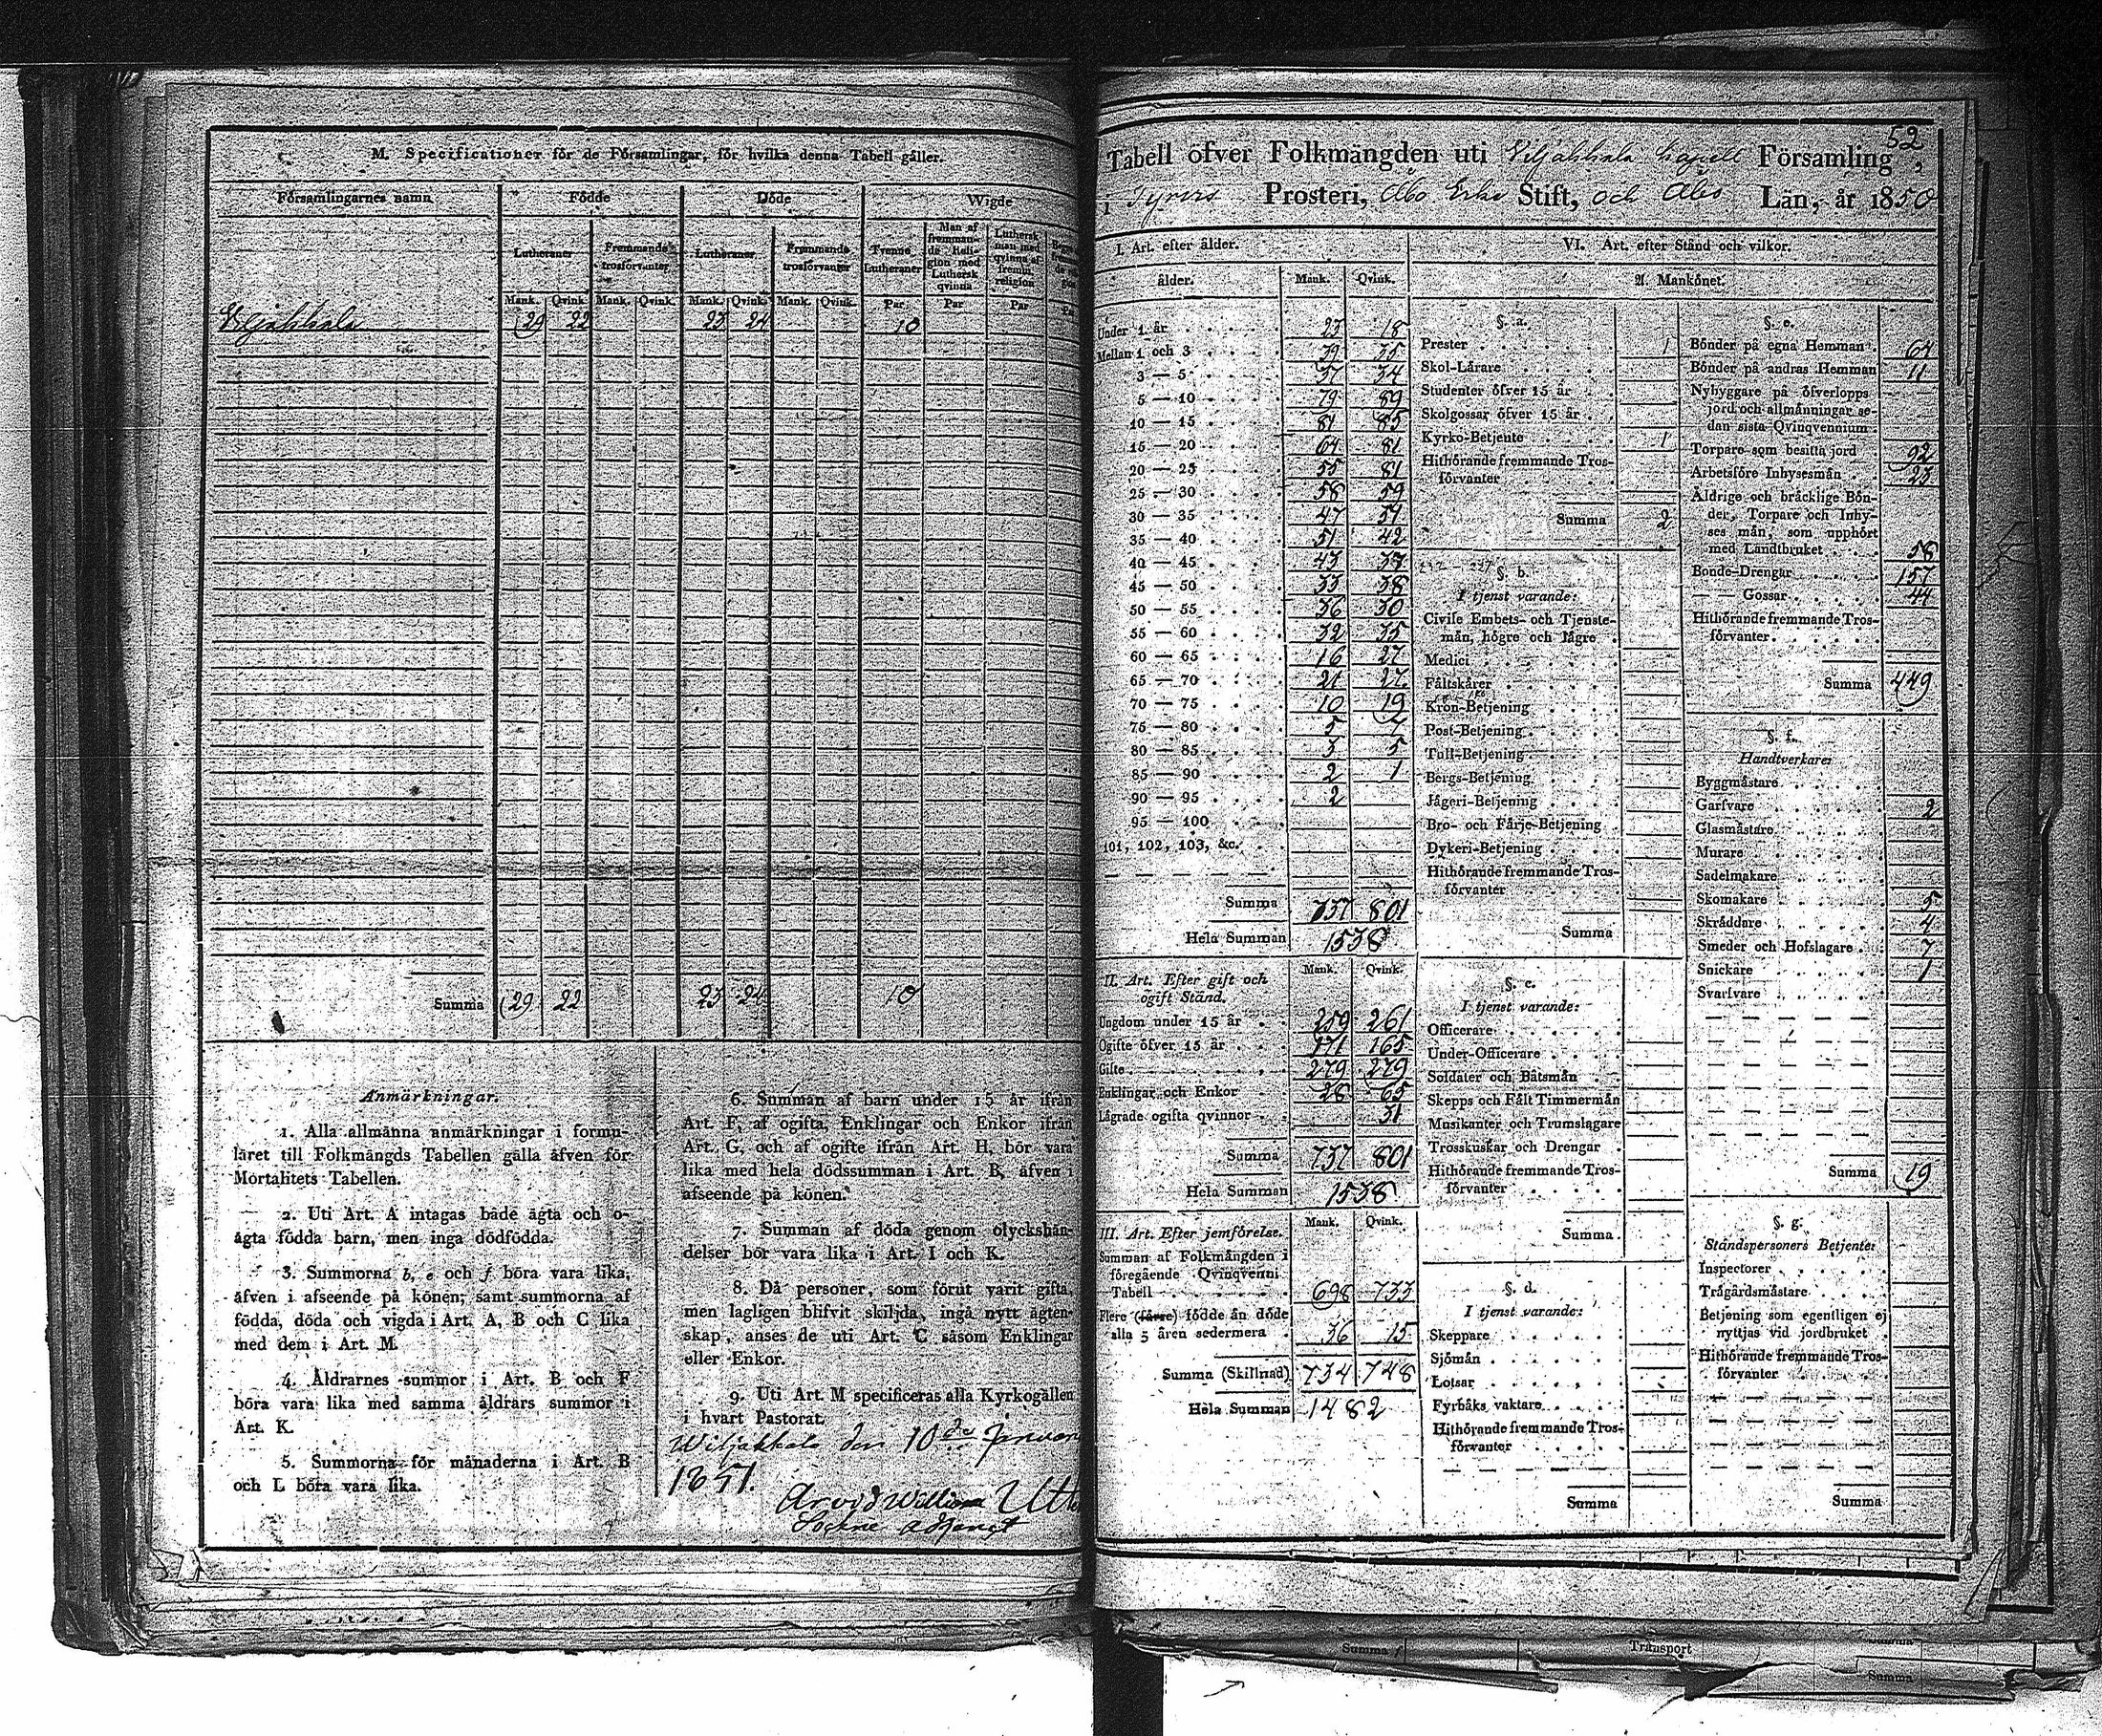 M. Specificationer för de Församlingar, för hvilka denna Tabell gäller.
Församlingarnes namn
Födde
Döde
Wigde
Lutheraner
Fremmande trosförvanter
Lutheraner
Fremmande trosförvanter
Tvenne Lutheraner
Man af fremmande Religion med Luthersk qvinna
Luthersk man med qvinna af fremm. religion
Mank. Qvink. Mank. Qvink. Mank. Qvink. Mank. Qvink. Par Par Par
Viljakkala 29 22 23 24 10
Summa 29 22 23 24 10
Anmärkningar.
1. Alla allmänna anmärkningar i formu-
läret till Folkmängds Tabellen gälla äfven för
Mortalitets Tabellen.
2. Uti Art. A intagas både ägta och o-
ägta födda barn, men inga dödfödda.
3. Summorna b, e och f böra vara lika,
äfven i afseende på könen; samt summorna af
födda, döda och vigda i Art. A, B och C lika
med dem i Art. M.
4. Åldrarnes summor i Art. B och F
böra vara lika med samma åldrars summor i
Art. K.
5. Summorna för månaderna i Art. B
och L böra vara lika.
6. Summan af barn under 15 år ifrån
Art. F, af ogifta, Enklingar och Enkor ifrån
Art. G, och af ogifte ifrån Art. H, bör vara
lika med hela dödssumman i Art. B, äfven i
afseende på könen.
7. Summan af döda genom olyckshän-
delser bör vara lika i Art. I och K.
8. Då personer, som förut varit gifta,
men lagligen blifvit skiljda, ingå nytt ägten-
skap, anses de uti Art. C såsom Enklingar
eller Enkor.
9. Uti Art. M specificeras alla Kyrkogällen
i hvart Pastorat.
Wiljakkala den 10de Januari
1851.
Arvid William
52
Tabell öfver Folkmängden uti Viljakkala Capell Församling,
i Tyrvis Prosteri, Åbo Erke Stift, och Åbo Län, år 1850
I. Art. efter ålder.
ålder. Mank. Qvink.
Under 1 år 23 18
Mellan 1 och 3 39 35
3 — 5 37 34
5 — 10 79 89
10 — 15 81 85
15 — 20 64 81
20 — 25 55 81
25 — 30 58 59
30 — 35 47 51
35 — 40 51 42
40 — 45 43 37
45 — 50 33 38
50 — 55 36 30
55 — 60 32 35
60 — 65 16 27
65 — 70 21 27
70 — 75 10 19
75 — 80 5 7
80 — 85 3 5
85 — 90 2 1
90 — 95 2
95 — 100
101, 102, 103, &c.
Summa 737 801
Hela Summan 1538
II. Art. Efter gift och
ogift Stånd.
Mank. Qvink.
Ungdom under 15 år 259 261
Ogifte öfver 15 år 171 165
Gifte 279 279
Enklingar och Enkor 28 65
Lägrade ogifta qvinnor 31
Summa 737 801
Hela Summan 1538
III. Art. Efter jemförelse.
Mank. Qvink.
Summan af Folkmängden i
föregående Qvinqvenni
Tabell 698 733
Flere (färre) födde än döde
alla 5 åren sedermera 36 15
Summa (Skillnad) 734 748
Hela Summan 1482
VI. Art. efter Stånd och vilkor.
A. Mankönet.
§. a.
Prester 1
Skol-Lärare
Studenter öfver 15 år
Skolgossar öfver 15 år
Kyrko-Betjente 1
Hithörande fremmande Tros-
förvanter
Summa 2
§. b.
I tjenst varande:
Civile Embets- och Tjenste-
män, högre och lägre
Medici
Fältskärer
Kron-Betjening
Post-Betjening
Tull-Betjening
Bergs-Betjening
Jägeri-Betjening
Bro- och Färje-Betjening
Dykeri-Betjening
Hithörande fremmande Tros-
förvanter
Summa
§. c.
I tjenst varande:
Officerare
Under-Officerare
Soldater och Båtsmän
Skepps och Fält Timmermän
Musikanter och Trumslagare
Trosskuskar och Drengar
Hithörande fremmande Tros-
förvanter
Summa
§. d.
I tjenst varande:
Skeppare
Sjömän
Lotsar
Fyrbåks vaktare
Hithörande fremmande Tros-
förvanter
Summa
§. e.
Bönder på egna Hemman 64
Bönder på andras Hemman 11
Nybyggare på öfverlopps
jord och allmänningar se-
dan sista Qvinqvennium
Torpare som besitta jord 92
Arbetsföre Inhysesmän 23
Åldrige och bräcklige Bön-
der, Torpare och Inhy-
ses män, som upphört
med Landtbruket 58
Bonde-Drengar 157
— — Gossar 44
Hithörande fremmande Tros-
förvanter
Summa 449
§. f.
Handtverkare:
Byggmästare
Garfvare 2
Glasmästare
Murare
Sadelmakare
Skomakare 5
Skräddare 4
Smeder och Hofslagare 7
Snickare 1
Svarfvare
Summa 19
§. g.
Ståndspersoners Betjente:
Inspectorer
Trägårdsmästare
Betjening som egentligen ej
nyttjas vid jordbruket
Hithörande fremmande Tros-
förvanter
Summa
Summa
Transport
Summa